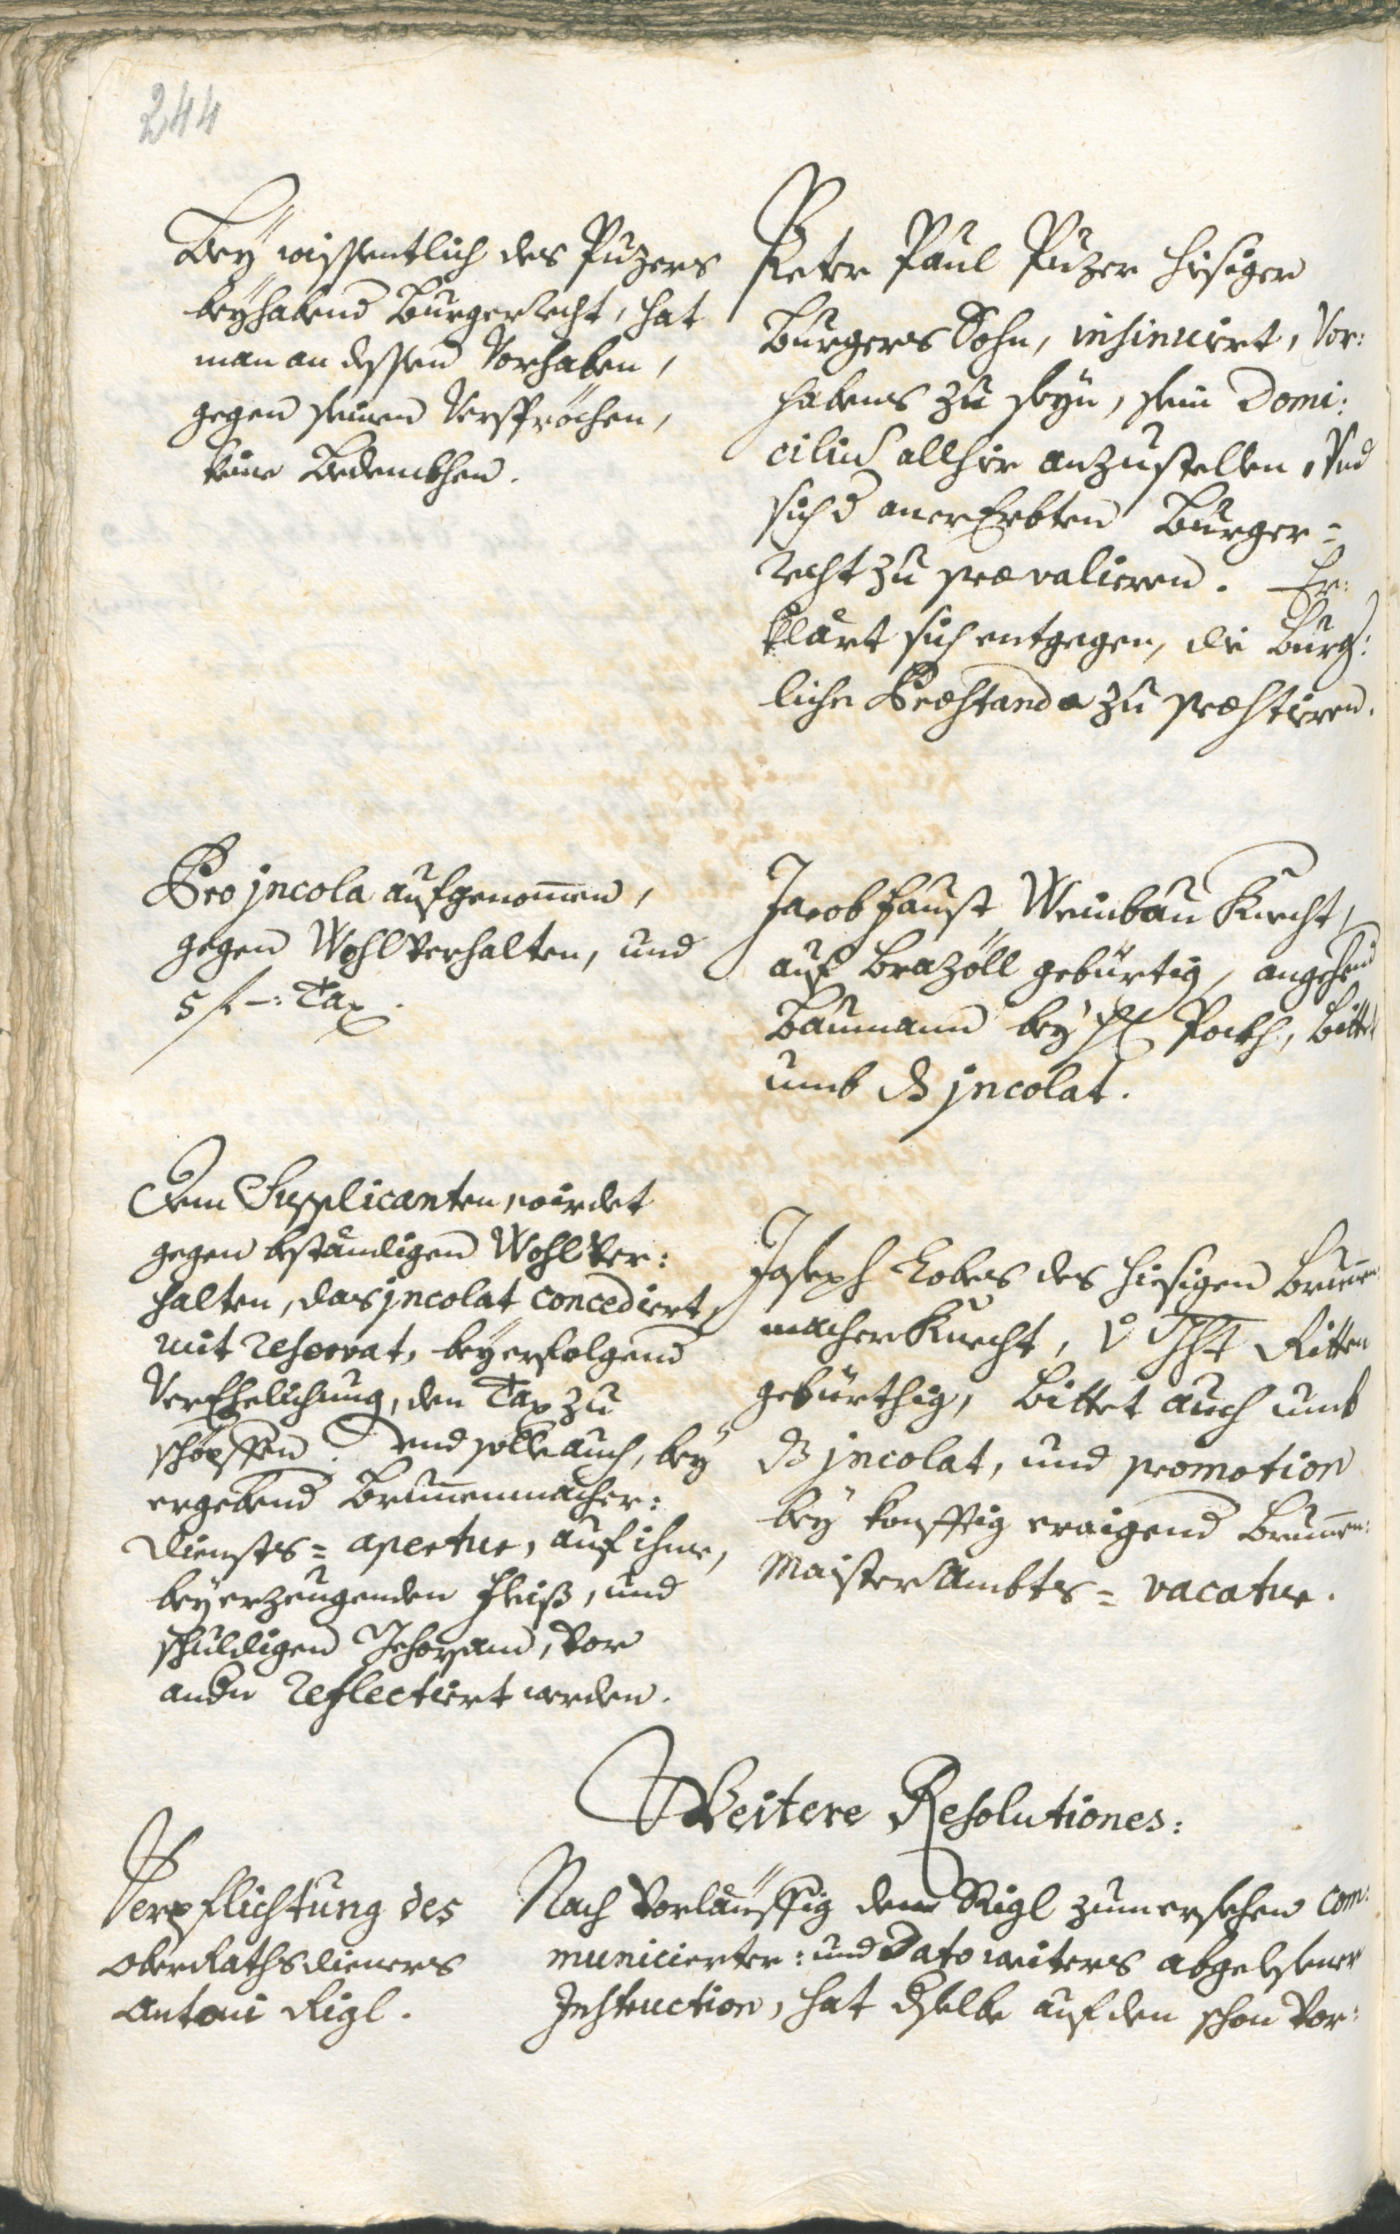 244
Bey wissentlich des Puzers
beyhabend Burgerrecht, hat
man an dessen Vorhaben,
gegen seinen Verspröchen,
keine Bedenckhen.
Peter Paul Puzer hisiger
Burgers Sohn, insinuirt, Vor:
habens zu seyn, sein Domi:
cilium allhir anzustellen, Und
sich anererbten Burger=
recht zu prævalieren. Er:
klärt sich entgegen, die Burg:
liche Præstanda zu præstieren.
Pro jncola aufgenommen,
gegen Wohlverhalten, und
5 f –: Tax.
Jacob Faust Weinbau Knecht,
auf Brazöll gebürtig, angehend
Baumann bey H. Pockh, Bittet
umb dz jncolat.
Dem Supplicanten wirdet
gegen bständigen Wohlver:
halten, das jncolat concediert,
mit reservat, bey erfolgend
Verehelichung, den Tax zu
schöpffen. Und solle auch, bey
ergebend Brunnenmacher:
Diensts= apertur, auf ihme,
bey erzeugenden Fleiß, und
schuldigen Gehorsam, vor
andern reflectiert werden.
Joseph Lobis des hiesigen Brunnen
macher Knecht, Ritten
gebürthig, Bittet auch umb
dz jncolat, und promotion
bey konfftig eraigend Brunnen:
Maister Ambts= vacatur.
Weitere Resolutiones:
Verpflichtung des
Ober Rathsdieners
Antoni Rigl.
Nach vorläuffig dem Rigl zum ersehen com:
municierter: und Dato weiters abgelesener
Instruction, hat dselbe auf den schon vor: